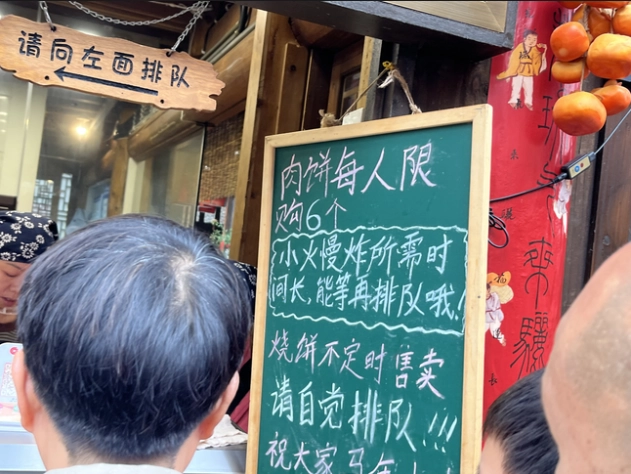 请向左面排队
肉饼每人限
购6个
小火慢炸所需时
间长,能等再排队哦!
烧饼不定时售卖
请自觉排队!!!
祝大家马年